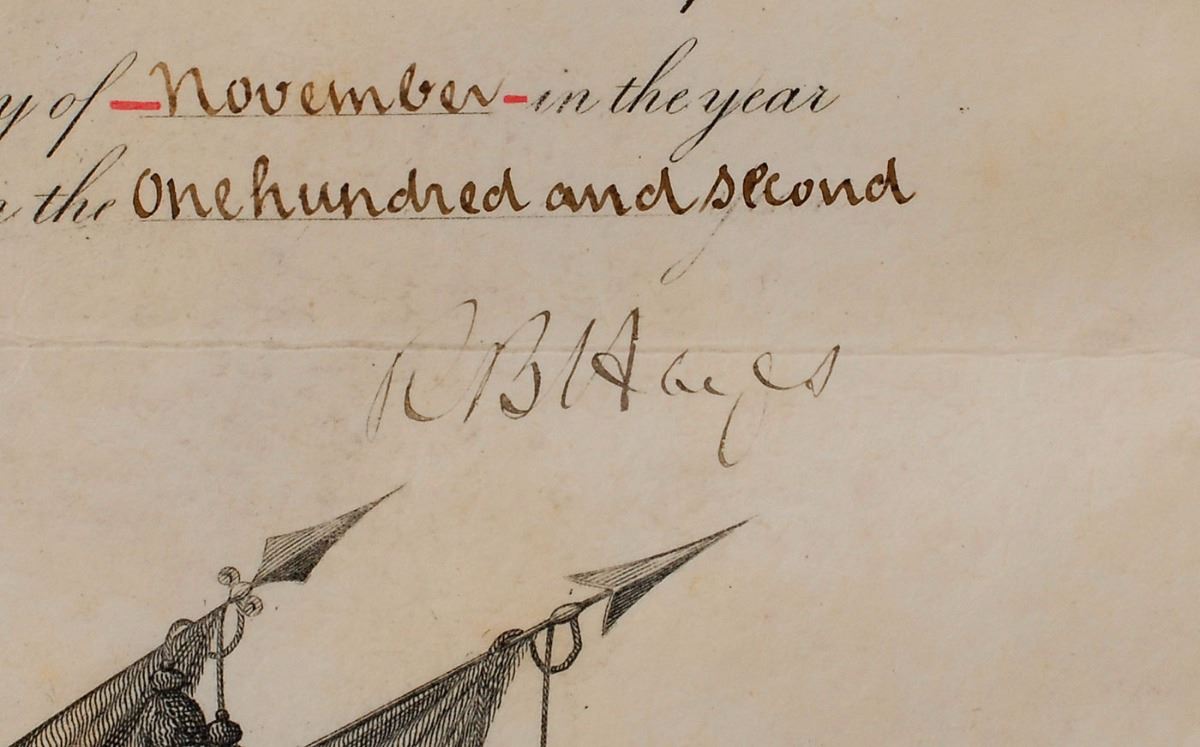 y of November in the year
the One hundred and second
R B Hayes